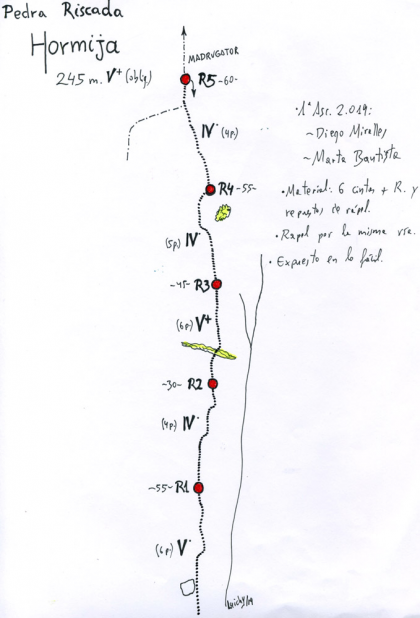 Pedra Riscada
Hormija
245 m. V+ (oblg)
MADRUGATOR
R5 -60-
IV· (4p)
·1ª Asc. 2.019:
~Diego Miralles
~Marta Bautista
R4 -55-
·Material: 6 cintas + R. y
repuestos de rápel.
·Rapel por la misma vía.
·Expuesto en lo fácil.
(5p) IV·
-45- R3
(6p) V+
-30- R2
(4p) IV·
-55- R1
(6p) V·